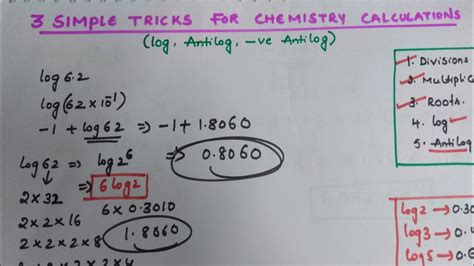 3 SIMPLE TRICKS FOR CHEMISTRY CALCULATIONS
(log, Antilog, -ve Antilog)
log 6.2
log(62 × 10⁻¹)
-1 + log 62 ⇒ -1 + 1.8060
⇒ 0.8060
log 62 ⇒ log 2⁶
⇒ 6 log 2
2 × 32
6 × 0.3010
2 × 2 × 16
1.8060
2 × 2 × 2 × 8
1. Divisions
2. Multiplic
3. Roots.
4. log
5. Antilog
log 2 → 0.30
log 3 → 0.
log 5 → 0.